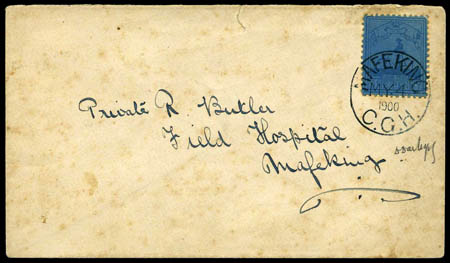 MAFEKING
MY
1900
C.G.H.
Private R. Butler
Field Hospital
Mafeking